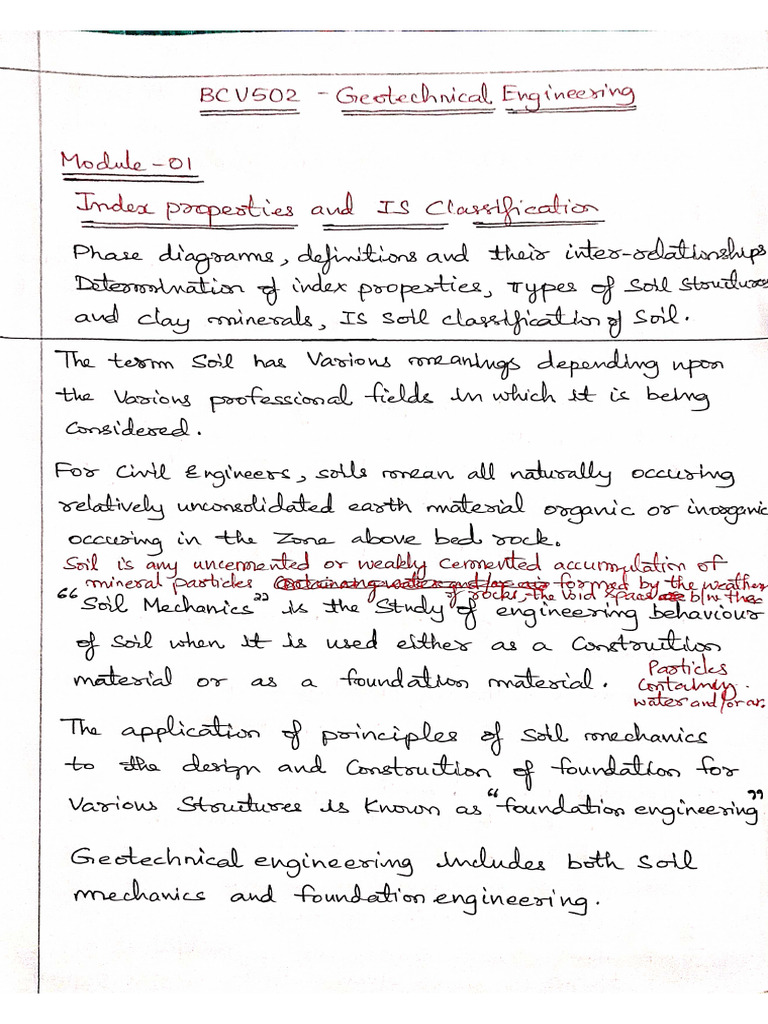 BCV502 - Geotechnical Engineering
Module - 01
Index properties and IS Classification
Phase diagrams, definitions and their inter-relationships
Determination of index properties, Types of soil structures
and clay minerals, IS soil classification of soil.
The term Soil has Various meanings depending upon
the Various professional fields in which it is being
Considered.
For Civil Engineers, soils mean all naturally occuring
relatively unconsolidated earth material organic or inorganic
occuring in the Zone above bed rock.
Soil is any uncemented or weakly cemented accumulation of
mineral particles containing water and/or air formed by the weather
of rocks, the void space b/w the
"Soil Mechanics" is the Study of engineering behaviour
of Soil when it is used either as a Construction
material or as a foundation material.
Particles
Containing
water and/or air.
The application of principles of Soil mechanics
to the design and Construction of foundation for
Various Structures is Known as "foundation engineering"
Geotechnical engineering includes both Soil
mechanics and foundation engineering.